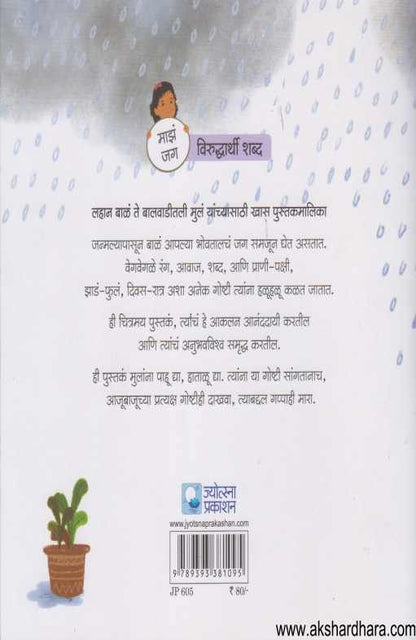 माझं
जग
विरुद्धार्थी शब्द
लहान बाळं ते बालवाडीतली मुलं यांच्यासाठी खास पुस्तकमालिका
जन्मल्यापासून बाळं आपल्या भोवतालचं जग समजून घेत असतात.
वेगवेगळे रंग, आवाज, शब्द, आणि प्राणी-पक्षी,
झाडं-फुलं, दिवस-रात्र अशा अनेक गोष्टी त्यांना हळूहळू कळत जातात.
ही चित्रमय पुस्तकं, त्यांचं हे आकलन आनंददायी करतील
आणि त्यांचं अनुभवविश्व समृद्ध करतील.
ही पुस्तकं मुलांना पाहू द्या, हाताळू द्या. त्यांना या गोष्टी सांगतानाच,
आजूबाजूच्या प्रत्यक्ष गोष्टीही दाखवा, त्याबद्दल गप्पाही मारा.
ज्योत्स्ना
प्रकाशन
www.jyotsnaprakashan.com
9 789393 381095
JP 605 ₹ 80/-
www.akshardhara.com